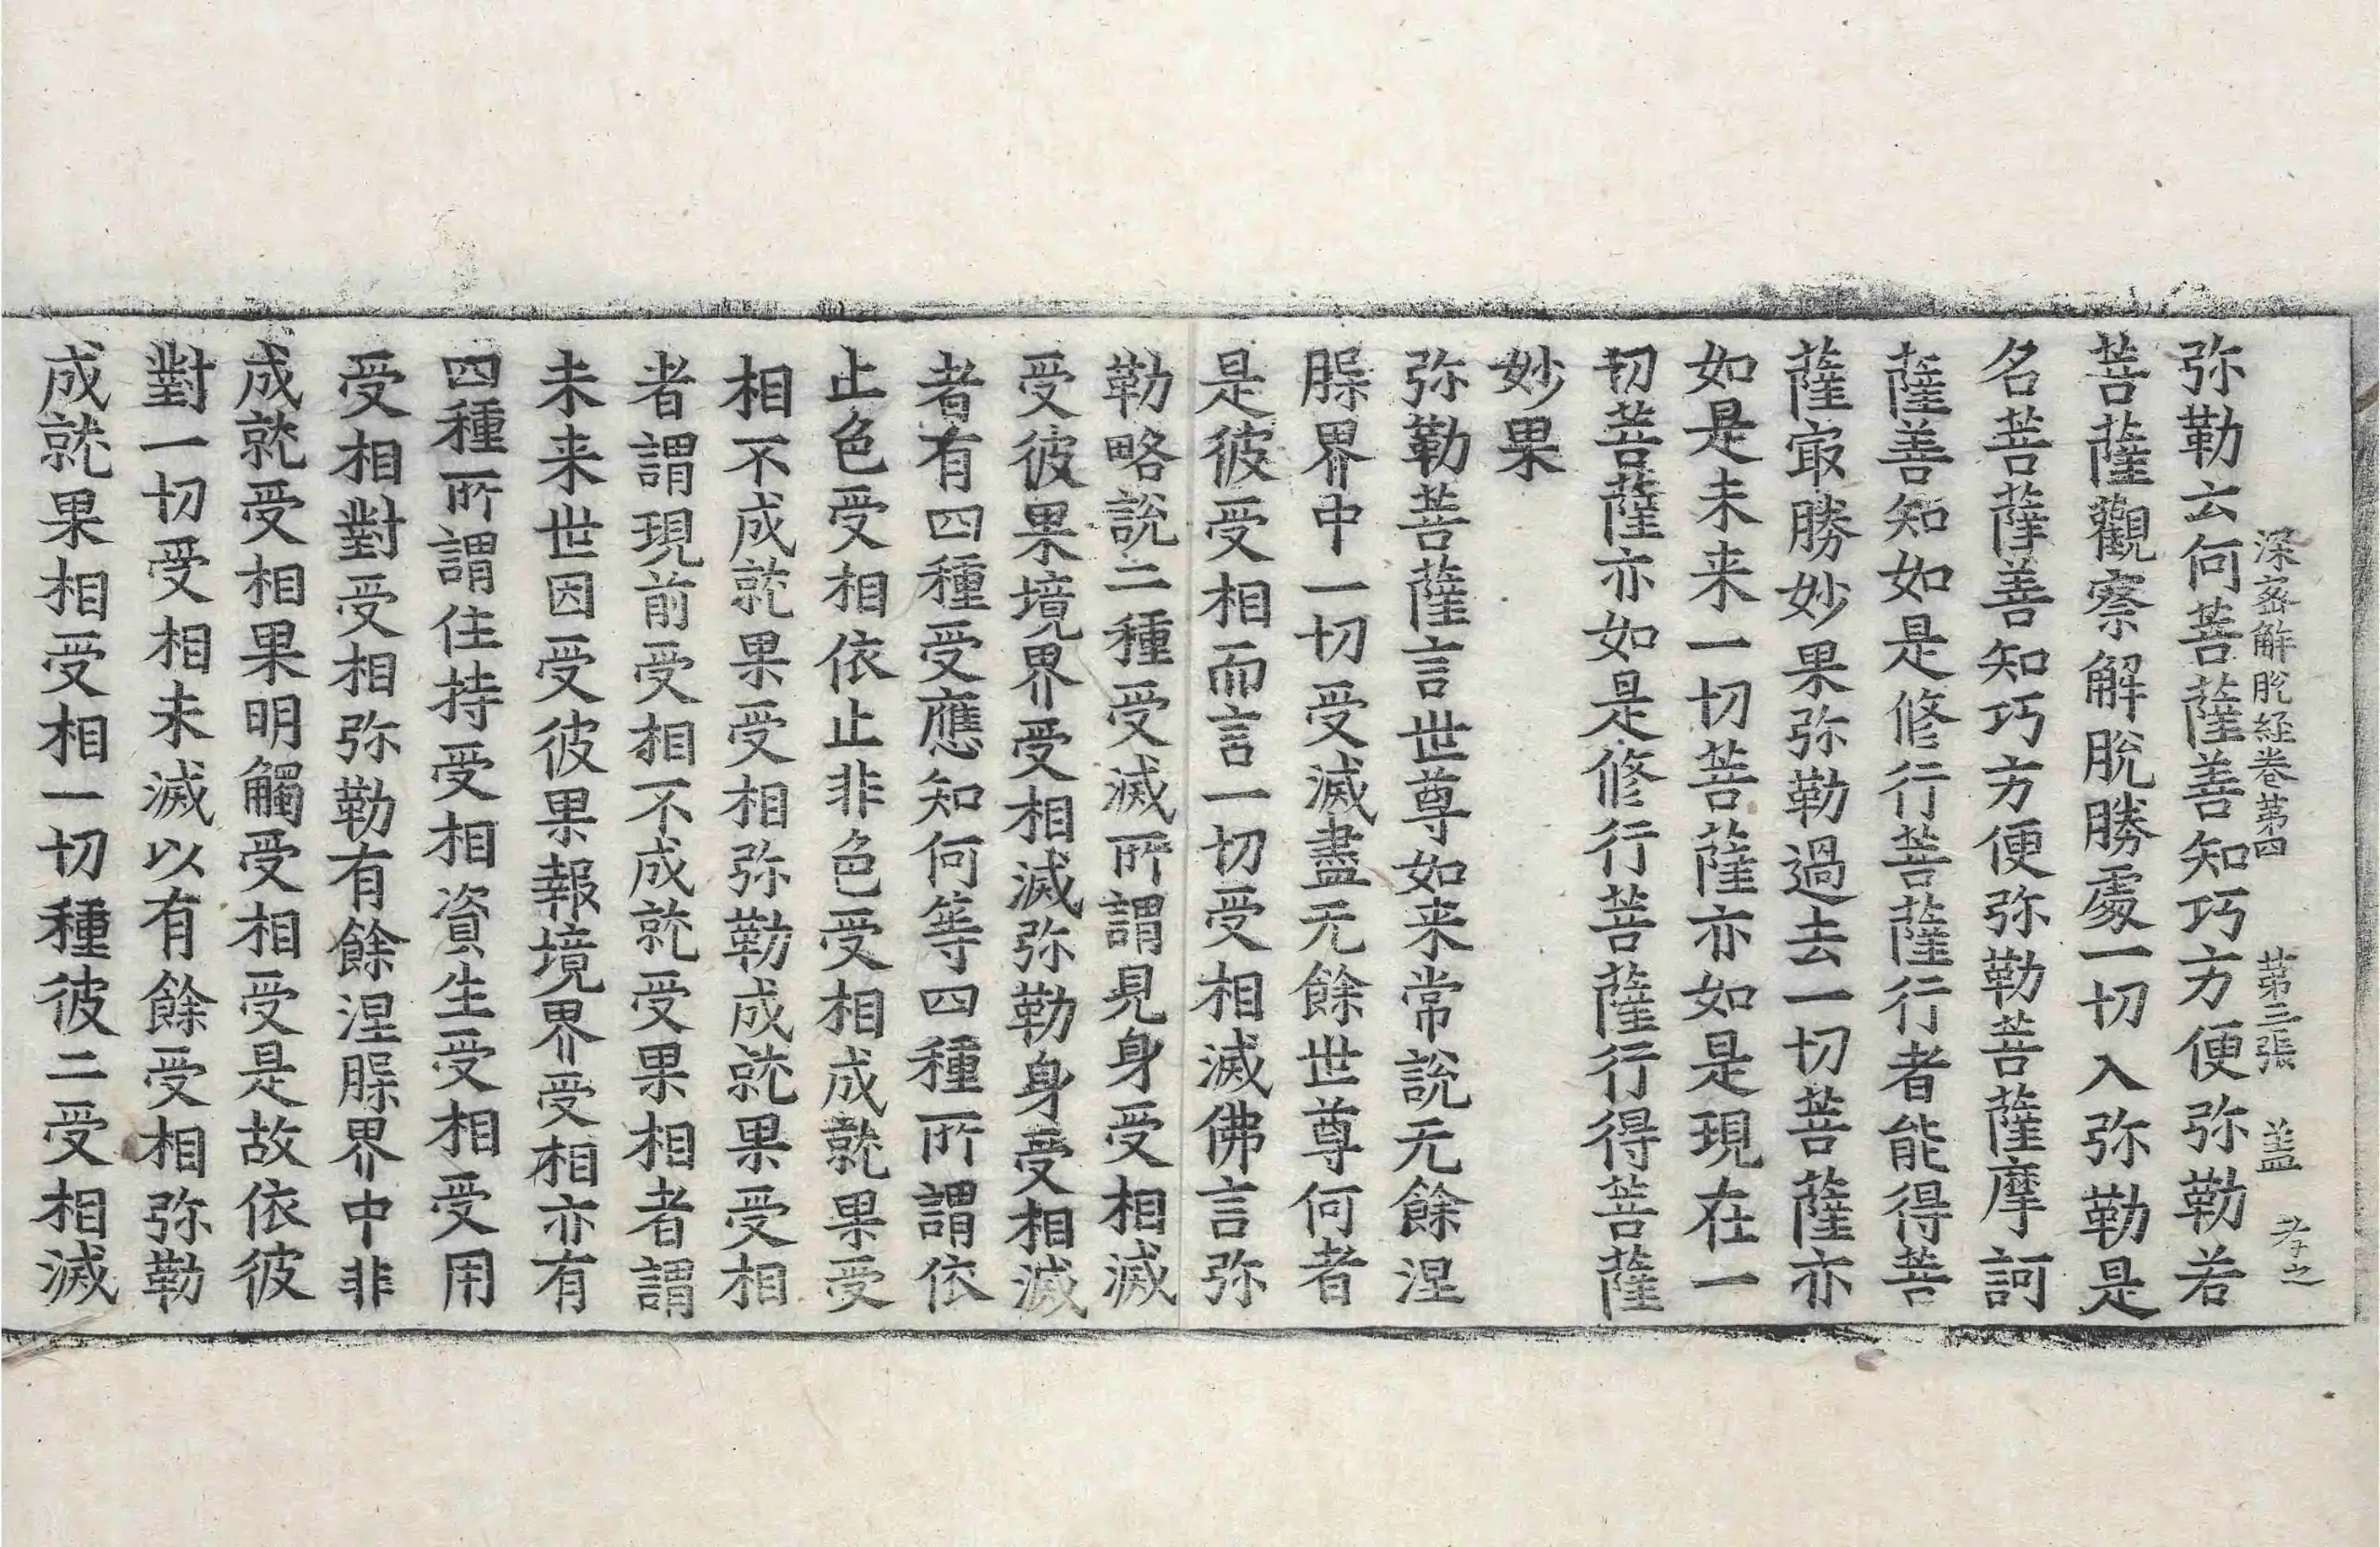 深密解脫経卷苐四　苐三張　盖　孝之
弥勒云何菩薩善知巧方便弥勒若
菩薩觀察解脫勝處一切入弥勒是
名菩薩善知巧方便弥勒菩薩摩訶
薩善知如是修行菩薩行者能得菩
薩㝡勝妙果弥勒過去一切菩薩亦
如是未来一切菩薩亦如是現在一
切菩薩亦如是修行菩薩行得菩薩
妙果
弥勒菩薩言世尊如来常說无餘涅
腺界中一切受滅盡无餘世尊何者
是彼受相而言一切受相滅佛言弥
勒略說二種受滅所謂見身受相滅
受彼果境界受相滅弥勒身受相滅
者有四種受應知何等四種所謂依
止色受相依止非色受相成就果受
相不成就果受相弥勒成就果受相
者謂現前受相不成就受果相者謂
未来世因受彼果報境界受相亦有
四種所謂住持受相資生受相受用
受相對受相弥勒有餘涅腺界中非
成就受相果明觸受相受是故依彼
對一切受相未滅以有餘受相弥勒
成就果相受相一切種彼二受相滅